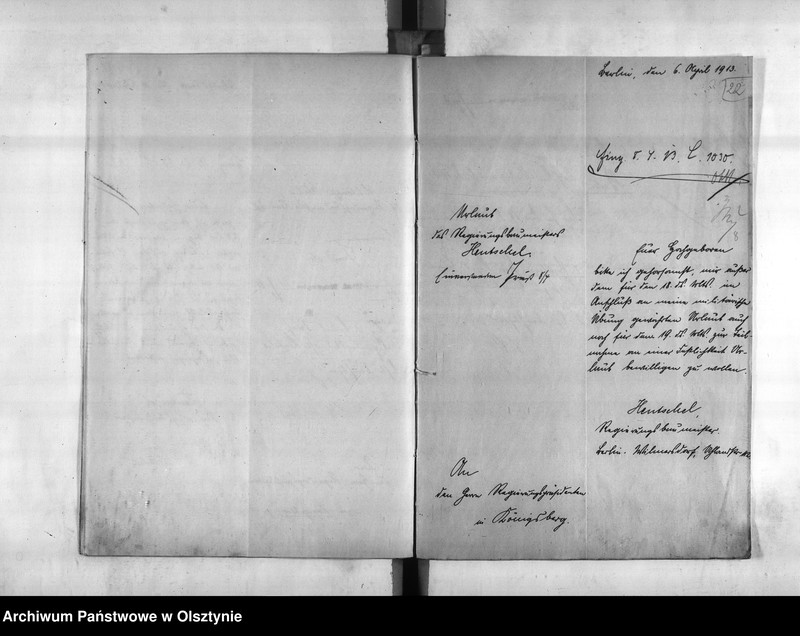 Berlin, den 6. April 1913.
22
Eing. 8. 4. 13. C. 1030.
Urlaub
des Regierungsbaumeisters
Hentschel.
Einverstanden
An
den Herrn Regierungspräsidenten
in Königsberg.
Euer Hochgeboren
bitte ich gehorsamst, mir außer
dem für den 18. ds. Mts. im
Anschluß an meine militärische
Übung gewährten Urlaub auch
noch für den 19. ds. Mts. zur Teil-
nahme an einer Festlichkeit Ur-
laub bewilligen zu wollen.
Hentschel,
Regierungsbaumeister.
Berlin-Wilmersdorf,
Archiwum Państwowe w Olsztynie